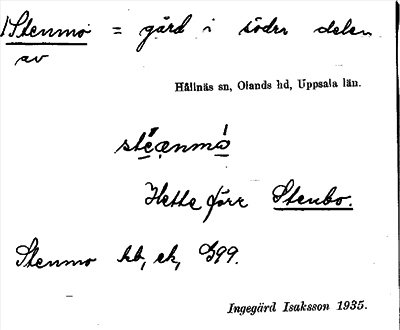 1 Stenmo = gård i södra delen
av
Hållnäs sn, Olands hd, Uppsala län.
stęenmo
Hette förr Stenbo.
Stenmo kb, ek, 399.
Ingegärd Isaksson 1935.